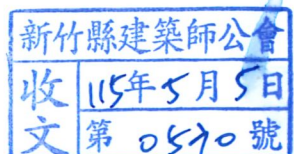 新竹縣建築師公會
收文
115年5月5日
第 0570 號